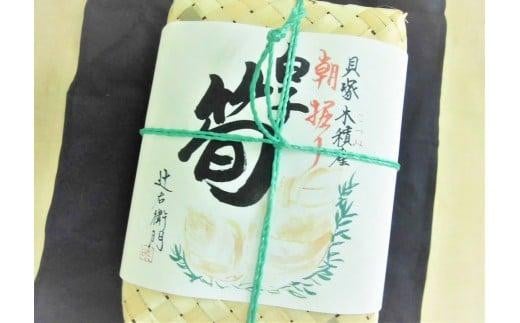 貝塚木積産
こつみ
朝掘り
筍
辻右衛門